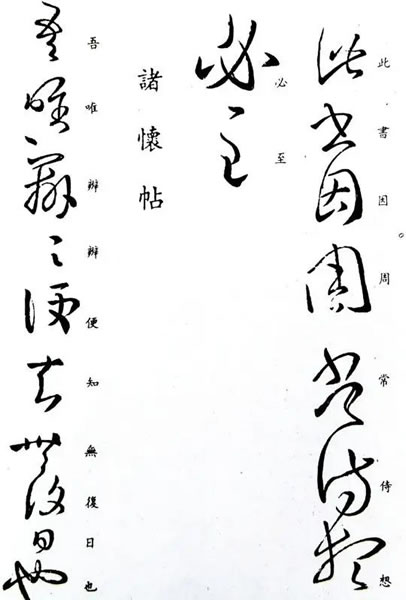 此書因周常侍想
必至
諸懷帖
吾唯辨辨便知無復日也